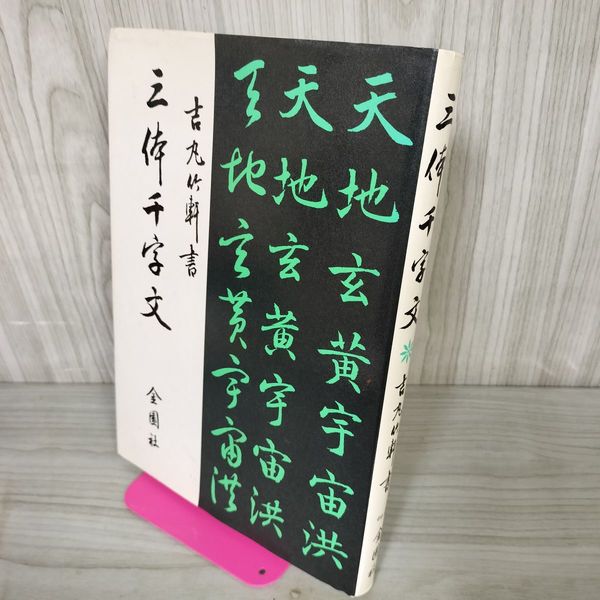 三体千字文
吉丸竹軒書
金園社
天地玄黄宇宙洪
天地玄黄宇宙洪
天地玄黄宇宙洪
三体千字文
吉丸竹軒書